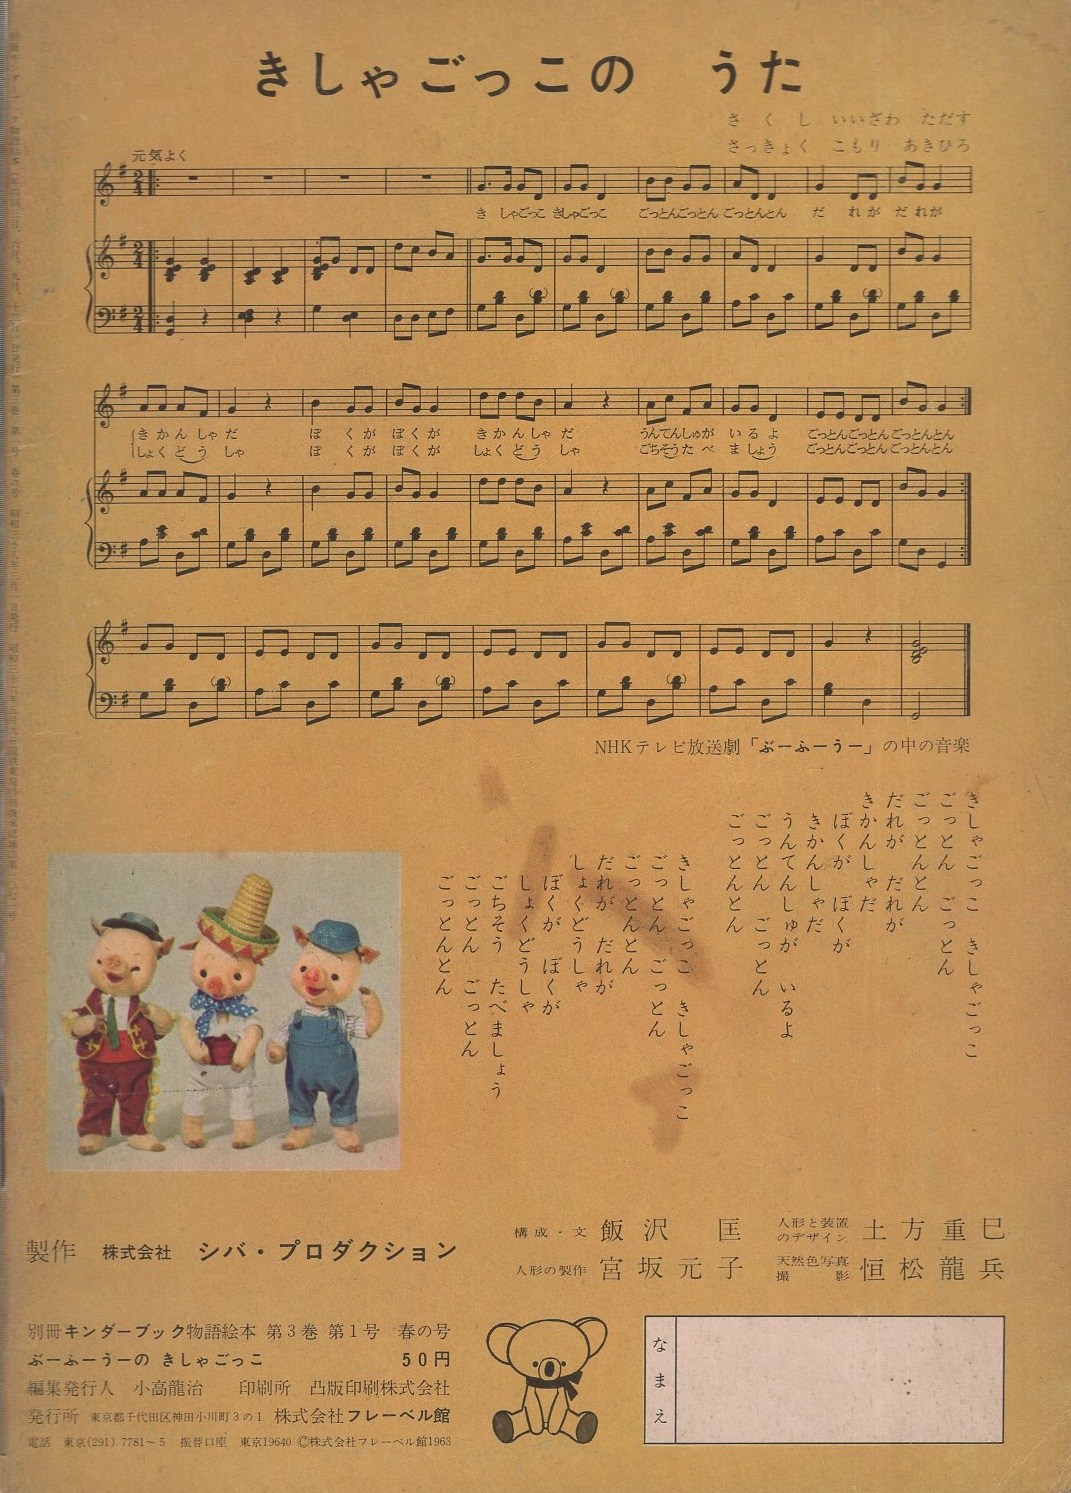 きしゃごっこの うた
さくし いいざわ ただす
さっきょく こもり あきひろ
元気よく
き しゃごっこ きしゃごっこ ごっとんごっとん ごっとんとん だ れが だ れが
きかんしゃだ ぼ くが ぼくが きかんしゃだ うんてんしゅが いるよ ごっとんごっとん ごっとんとん
しょくどうしゃ ぼ くが ぼくが しょくどうしゃ ごちそうたべ ましょう ごっとんごっとん ごっとんとん
NHKテレビ放送劇「ぶーふーうー」の中の音楽
きしゃごっこ きしゃごっこ
ごっとん ごっとん
ごっとんとん
だれが だれが
きかんしゃだ
ぼくが ぼくが
きかんしゃだ
うんてんしゅが いるよ
ごっとん ごっとん
ごっとんとん
きしゃごっこ きしゃごっこ
ごっとん ごっとん
ごっとんとん
だれが だれが
しょくどうしゃ
ぼくが ぼくが
しょくどうしゃ
ごちそう たべましょう
ごっとん ごっとん
ごっとんとん
製作 株式会社 シバ・プロダクション
構成・文 飯沢 匡
人形の製作 宮坂元子
人形と装置のデザイン 土方重巳
天然色写真撮影 恒松龍兵
別冊キンダーブック物語絵本 第3巻 第1号 春の号
ぶーふーうーの きしゃごっこ 50円
編集発行人 小高龍治 印刷所 凸版印刷株式会社
発行所 東京都千代田区神田小川町3の1 株式会社フレーベル館
電話 東京(291)7781~5 振替口座 東京19640 ©株式会社フレーベル館1963
なまえ